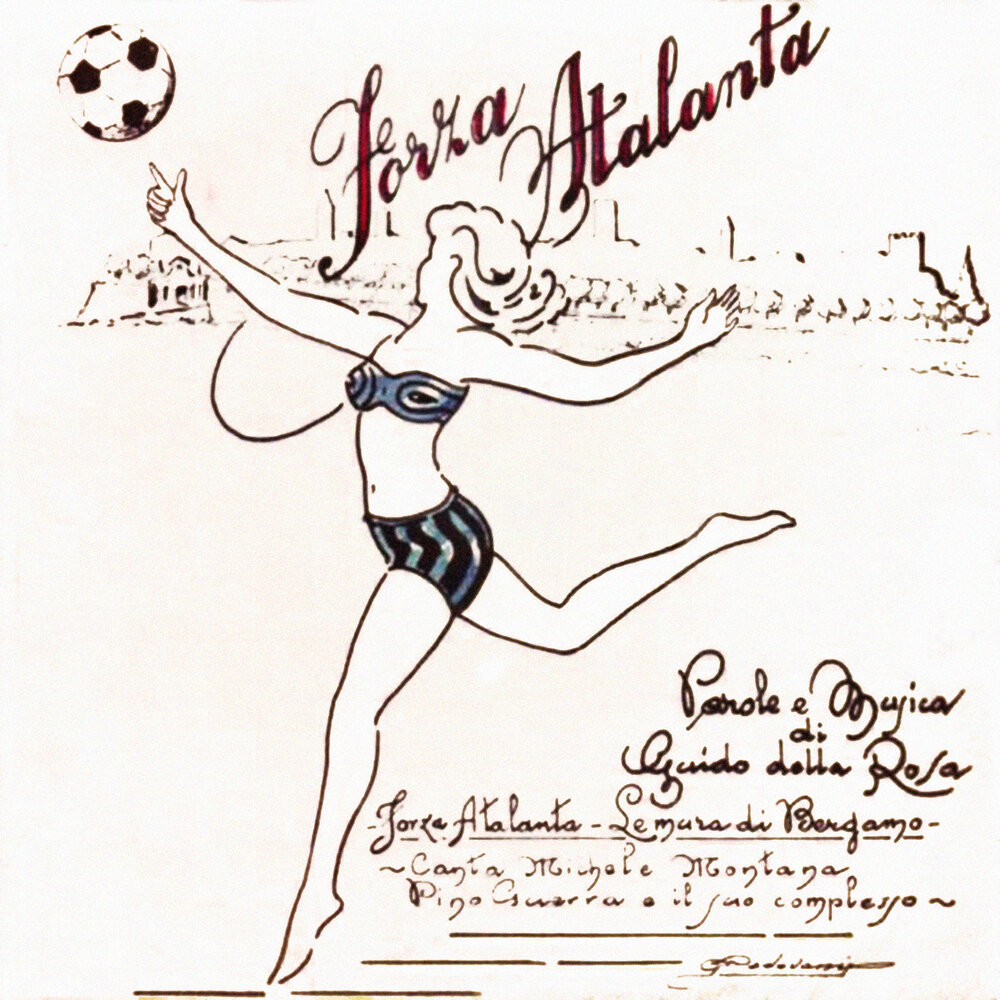 Forza Atalanta
Parole e Musica
di
Guido della Rosa
-Forza Atalanta - Le mura di Bergamo-
~Canta Michele Montana
Pino Guerra e il suo complesso~